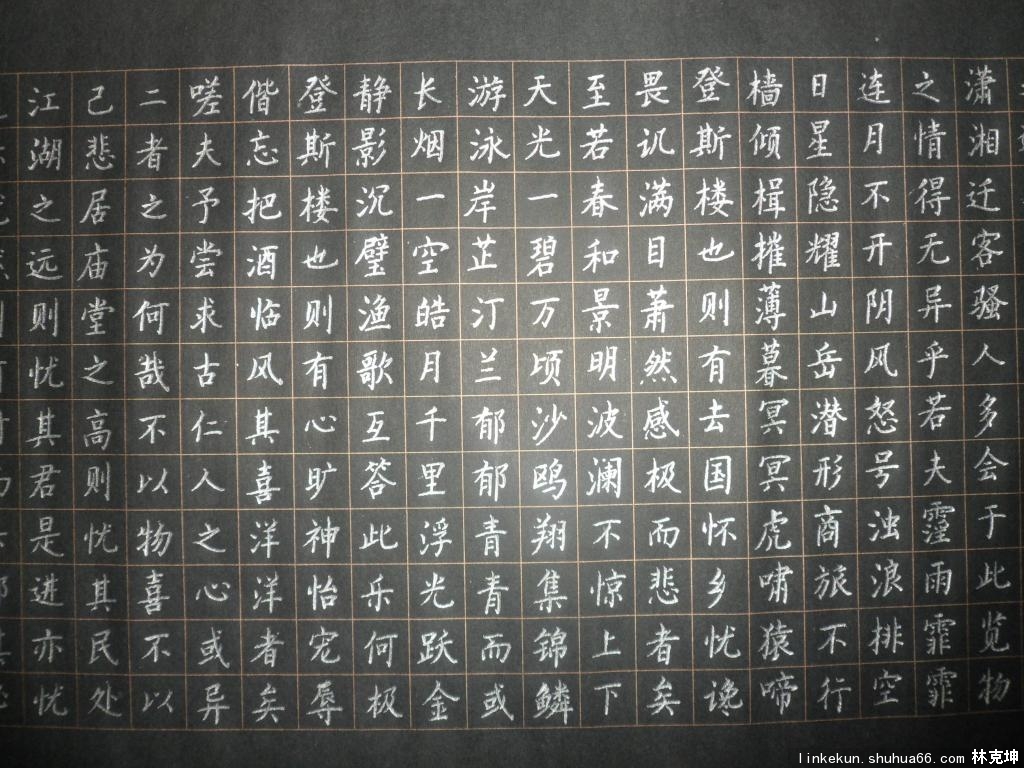 潇湘迁客骚人多会于此览物
之情得无异乎若夫霪雨霏霏
连月不开阴风怒号浊浪排空
日星隐耀山岳潜形商旅不行
樯倾楫摧薄暮冥冥虎啸猿啼
登斯楼也则有去国怀乡忧谗
畏讥满目萧然感极而悲者矣
至若春和景明波澜不惊上下
天光一碧万顷沙鸥翔集锦鳞
游泳岸芷汀兰郁郁青青而或
长烟一空皓月千里浮光跃金
静影沉璧渔歌互答此乐何极
登斯楼也则有心旷神怡宠辱
偕忘把酒临风其喜洋洋者矣
嗟夫予尝求古仁人之心或异
二者之为何哉不以物喜不以
己悲居庙堂之高则忧其民处
江湖之远则忧其君是进亦忧
linkekun.shuhua66.com 林克坤